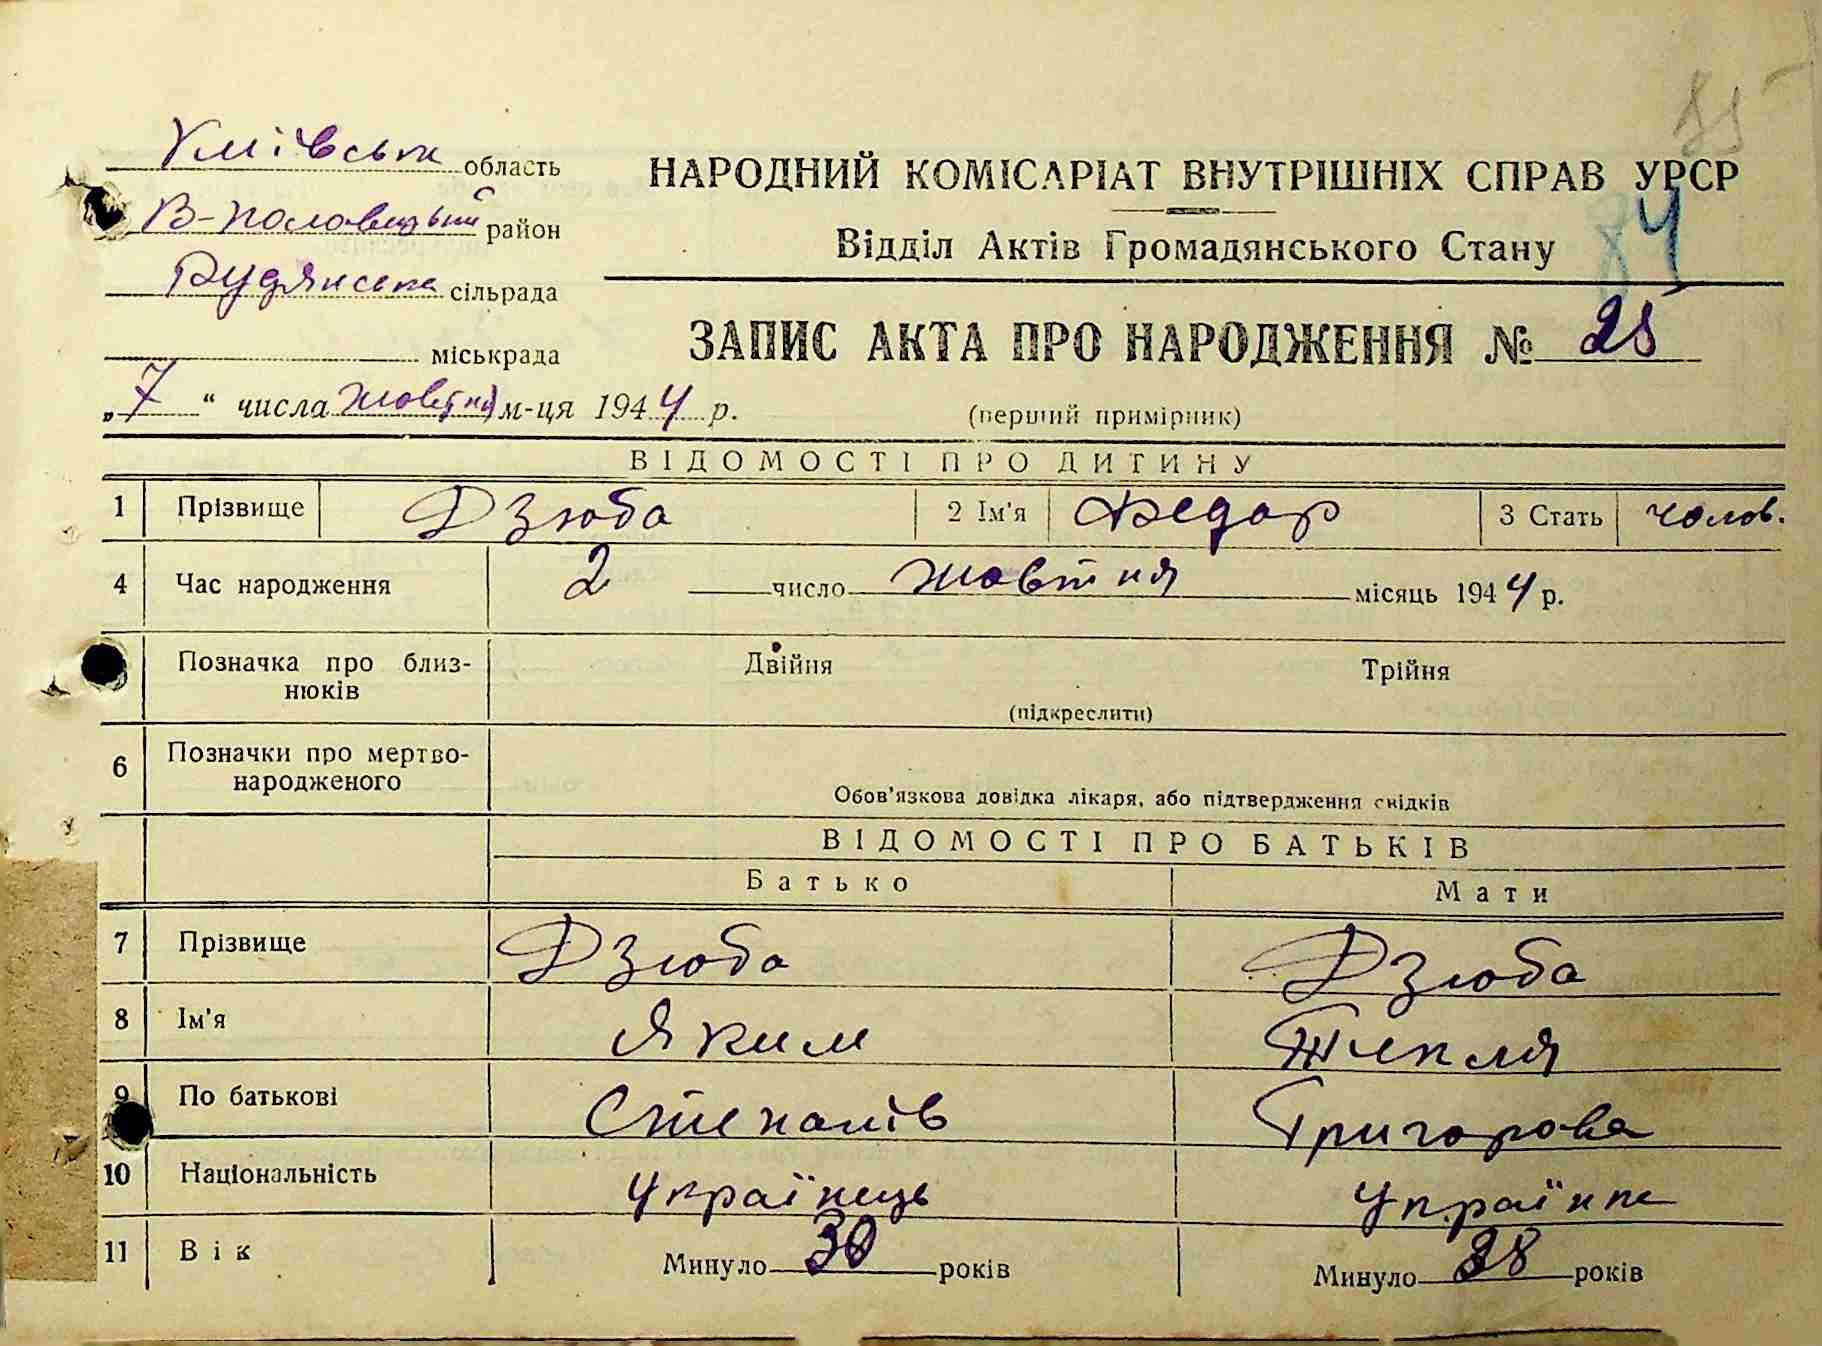 85
Київська область
В-Половецький район
Рудянська сільрада
міськрада
НАРОДНИЙ КОМІСАРІАТ ВНУТРІШНІХ СПРАВ УРСР
84
Відділ Актів Громадянського Стану
ЗАПИС АКТА ПРО НАРОДЖЕННЯ № 25
„7“ числа жовтня м-ця 1944 р.
(перший примірник)
ВІДОМОСТІ ПРО ДИТИНУ
1 Прізвище Дзюба 2 Ім'я Федор 3 Стать чолов.
4 Час народження 2 число жовтня місяць 1944 р.
Позначка про близ-
нюків
Двійня Трійня
(підкреслити)
6 Позначки про мертво-
народженого
Обов'язкова довідка лікаря, або підтвердження свідків
ВІДОМОСТІ ПРО БАТЬКІВ
Батько Мати
7 Прізвище Дзюба Дзюба
8 Ім'я Яким Текля
9 По батькові Степанів Григорова
10 Національність Українець Українка
11 Вік Минуло 30 років Минуло 28 років